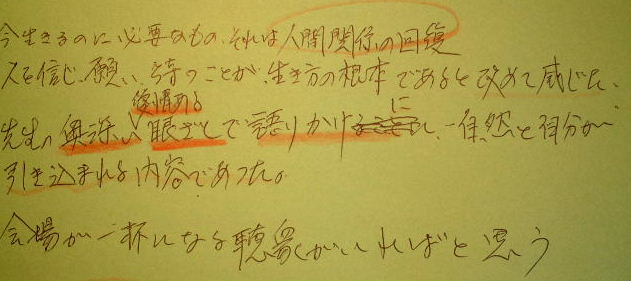 今生きるのに必要なもの、それは人間関係の回復
人を信じ、願い、待つことが、生き方の根本であると改めて感じた、
先生の奥深い眼ざしで語りかけに、自然と自分が
引き込まれる内容であった。
会場が一杯になる聴衆がいればと思う